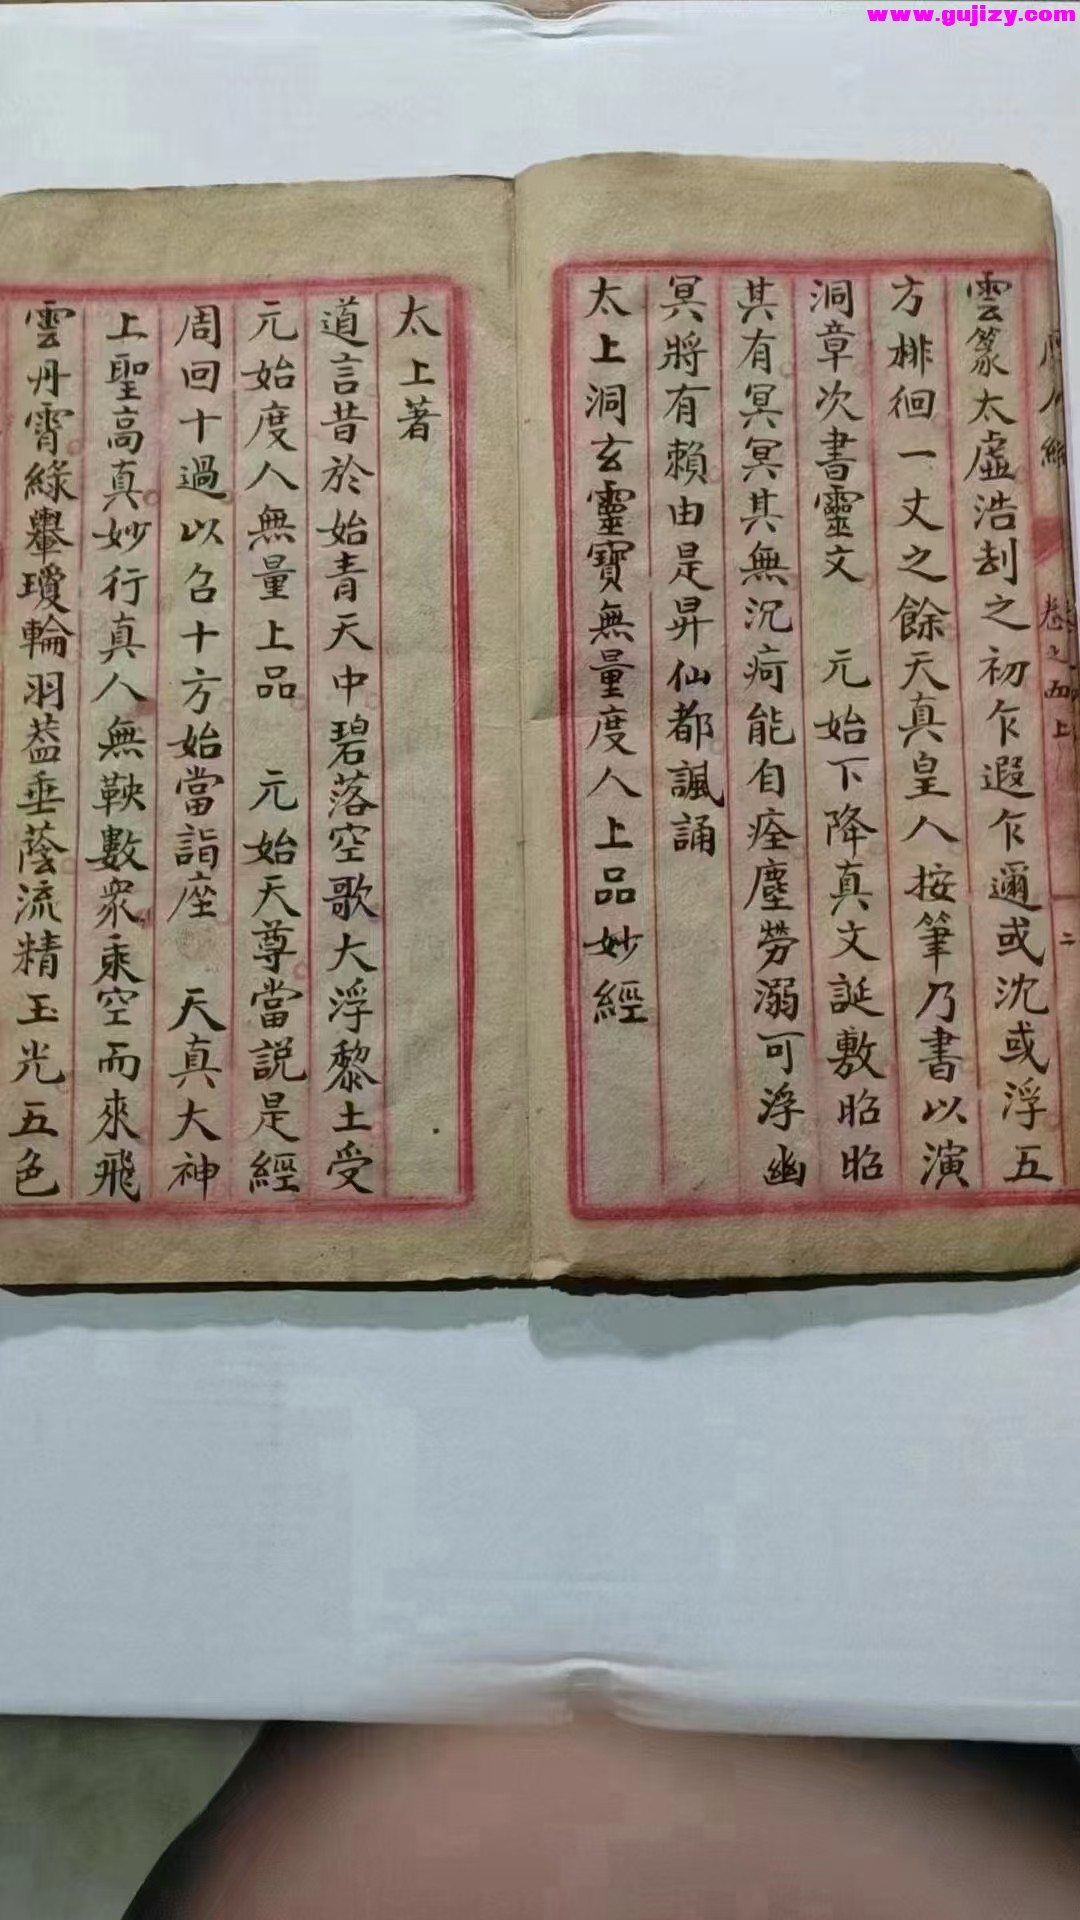 www.gujizy.com
度人經 卷之四上 二
雲篆太虛浩刼之初乍遐乍邇或沈或浮五
方桃徊一丈之餘天真皇人按筆乃書以演
洞章次書靈文 元始下降真文誕敷昭昭
其有冥冥其無沉疴能自痊塵勞溺可浮幽
冥將有賴由是昇仙都諷誦
太上洞玄靈寶無量度人上品妙經
太上著
道言昔於始青天中碧落空歌大浮黎土受
元始度人無量上品 元始天尊當說是經
周回十過以召十方始當詣座 天真大神
上聖高真妙行真人無鞅數衆乘空而來飛
雲丹霄綠轝瓊輪羽蓋垂蔭流精玉光五色